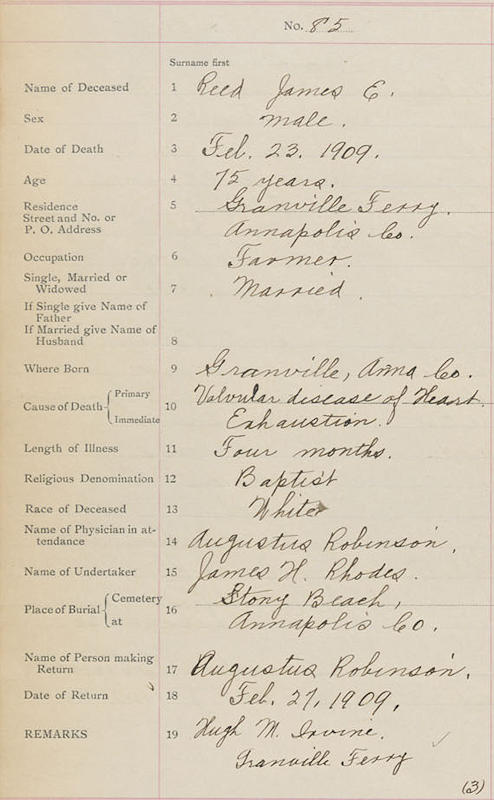 No. 85
Surname first
Name of Deceased 1 Reed James E.
Sex 2 Male.
Date of Death 3 Feb. 23. 1909.
Age 4 75 years.
Residence 5 Granville Ferry.
Street and No. or
P. O. Address Annapolis Co.
Occupation 6 Farmer.
Single, Married or
Widowed 7 Married
If Single give Name of
Father
If Married give Name of
Husband 8
Where Born 9 Granville, Anna Co.
Cause of Death { Primary 10 Valvular disease of Heart.
Immediate Exhaustion.
Length of Illness 11 Four months.
Religious Denomination 12 Baptist
Race of Deceased 13 White
Name of Physician in at-
tendance 14 Augustus Robinson.
Name of Undertaker 15 James H. Rhodes.
Place of Burial { Cemetery 16 Stony Beach,
at Annapolis Co.
Name of Person making
Return 17 Augustus Robinson.
Date of Return 18 Feb. 27, 1909.
REMARKS 19 Hugh M. Irvine.
Granville Ferry
(3)